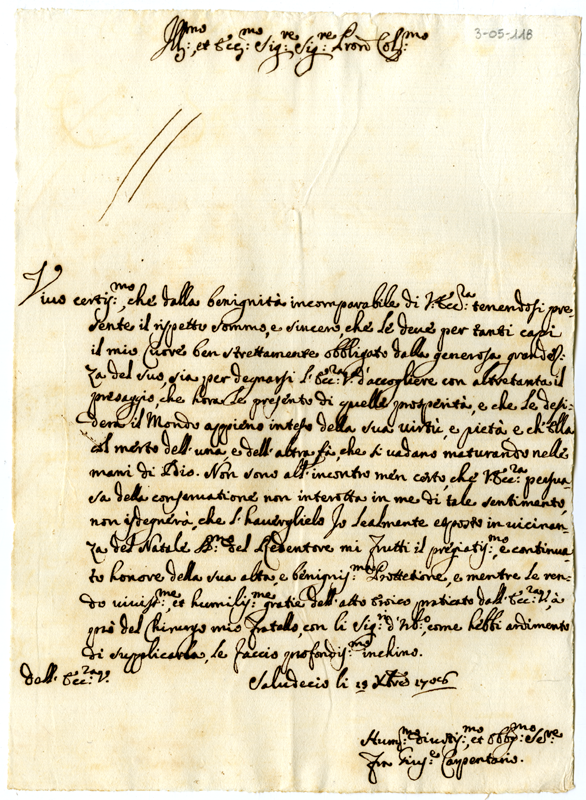 3-05-118
Ill:mo, et Ecc:mo Sig:re Sig:re Pron Col:mo
Vivo certis:mo, che dalla benignità incomparabile di V: Ecc:za tenendosi pre
sente il rispetto sommo, e sincero, che le deve per tanti capi
il mio cuore ben strettamente obbligato dalla generosa grandez:
za del suo, sia per degnarsi l'Ecc:za V: d'accogliere con altretanta il
presaggio, che hora le presento di quelle prosperità, e che le desi:
dera il Mondo appieno inteso della sua virtù, e pietà e ch'Ella
col merto dell'una, e dell'altra fà, che si vadano maturando nelle
mani di Dio. Non sono all'incontro men certo, che V: Ecc:za persua
sa della conservatione non interotta in me di tale sentimento,
non isdegnerà, che l'haverglielo Io lealmente esposto in vicinan:
za del Natale del Redentore mi frutti il pregiatis:mo, e continua
to honore della sua alta, e benignis:ma Prottetione, e mentre le ren:
do viviss:me, et humilis:me gratie dell'atto eroico praticato dall'Ecc:za V: à
prò del Chirurgo mio fratello, con li Sig:ri d'come hebbi ardimento
di supplicarla, le faccio profondis:mo inchino.
Dell'Ecc:za V:
Saludecio li 19 Xbre 1706
Hum:mo Divotis:mo, et Obb:mo Se:re
Fra Gius:e Carpentario.